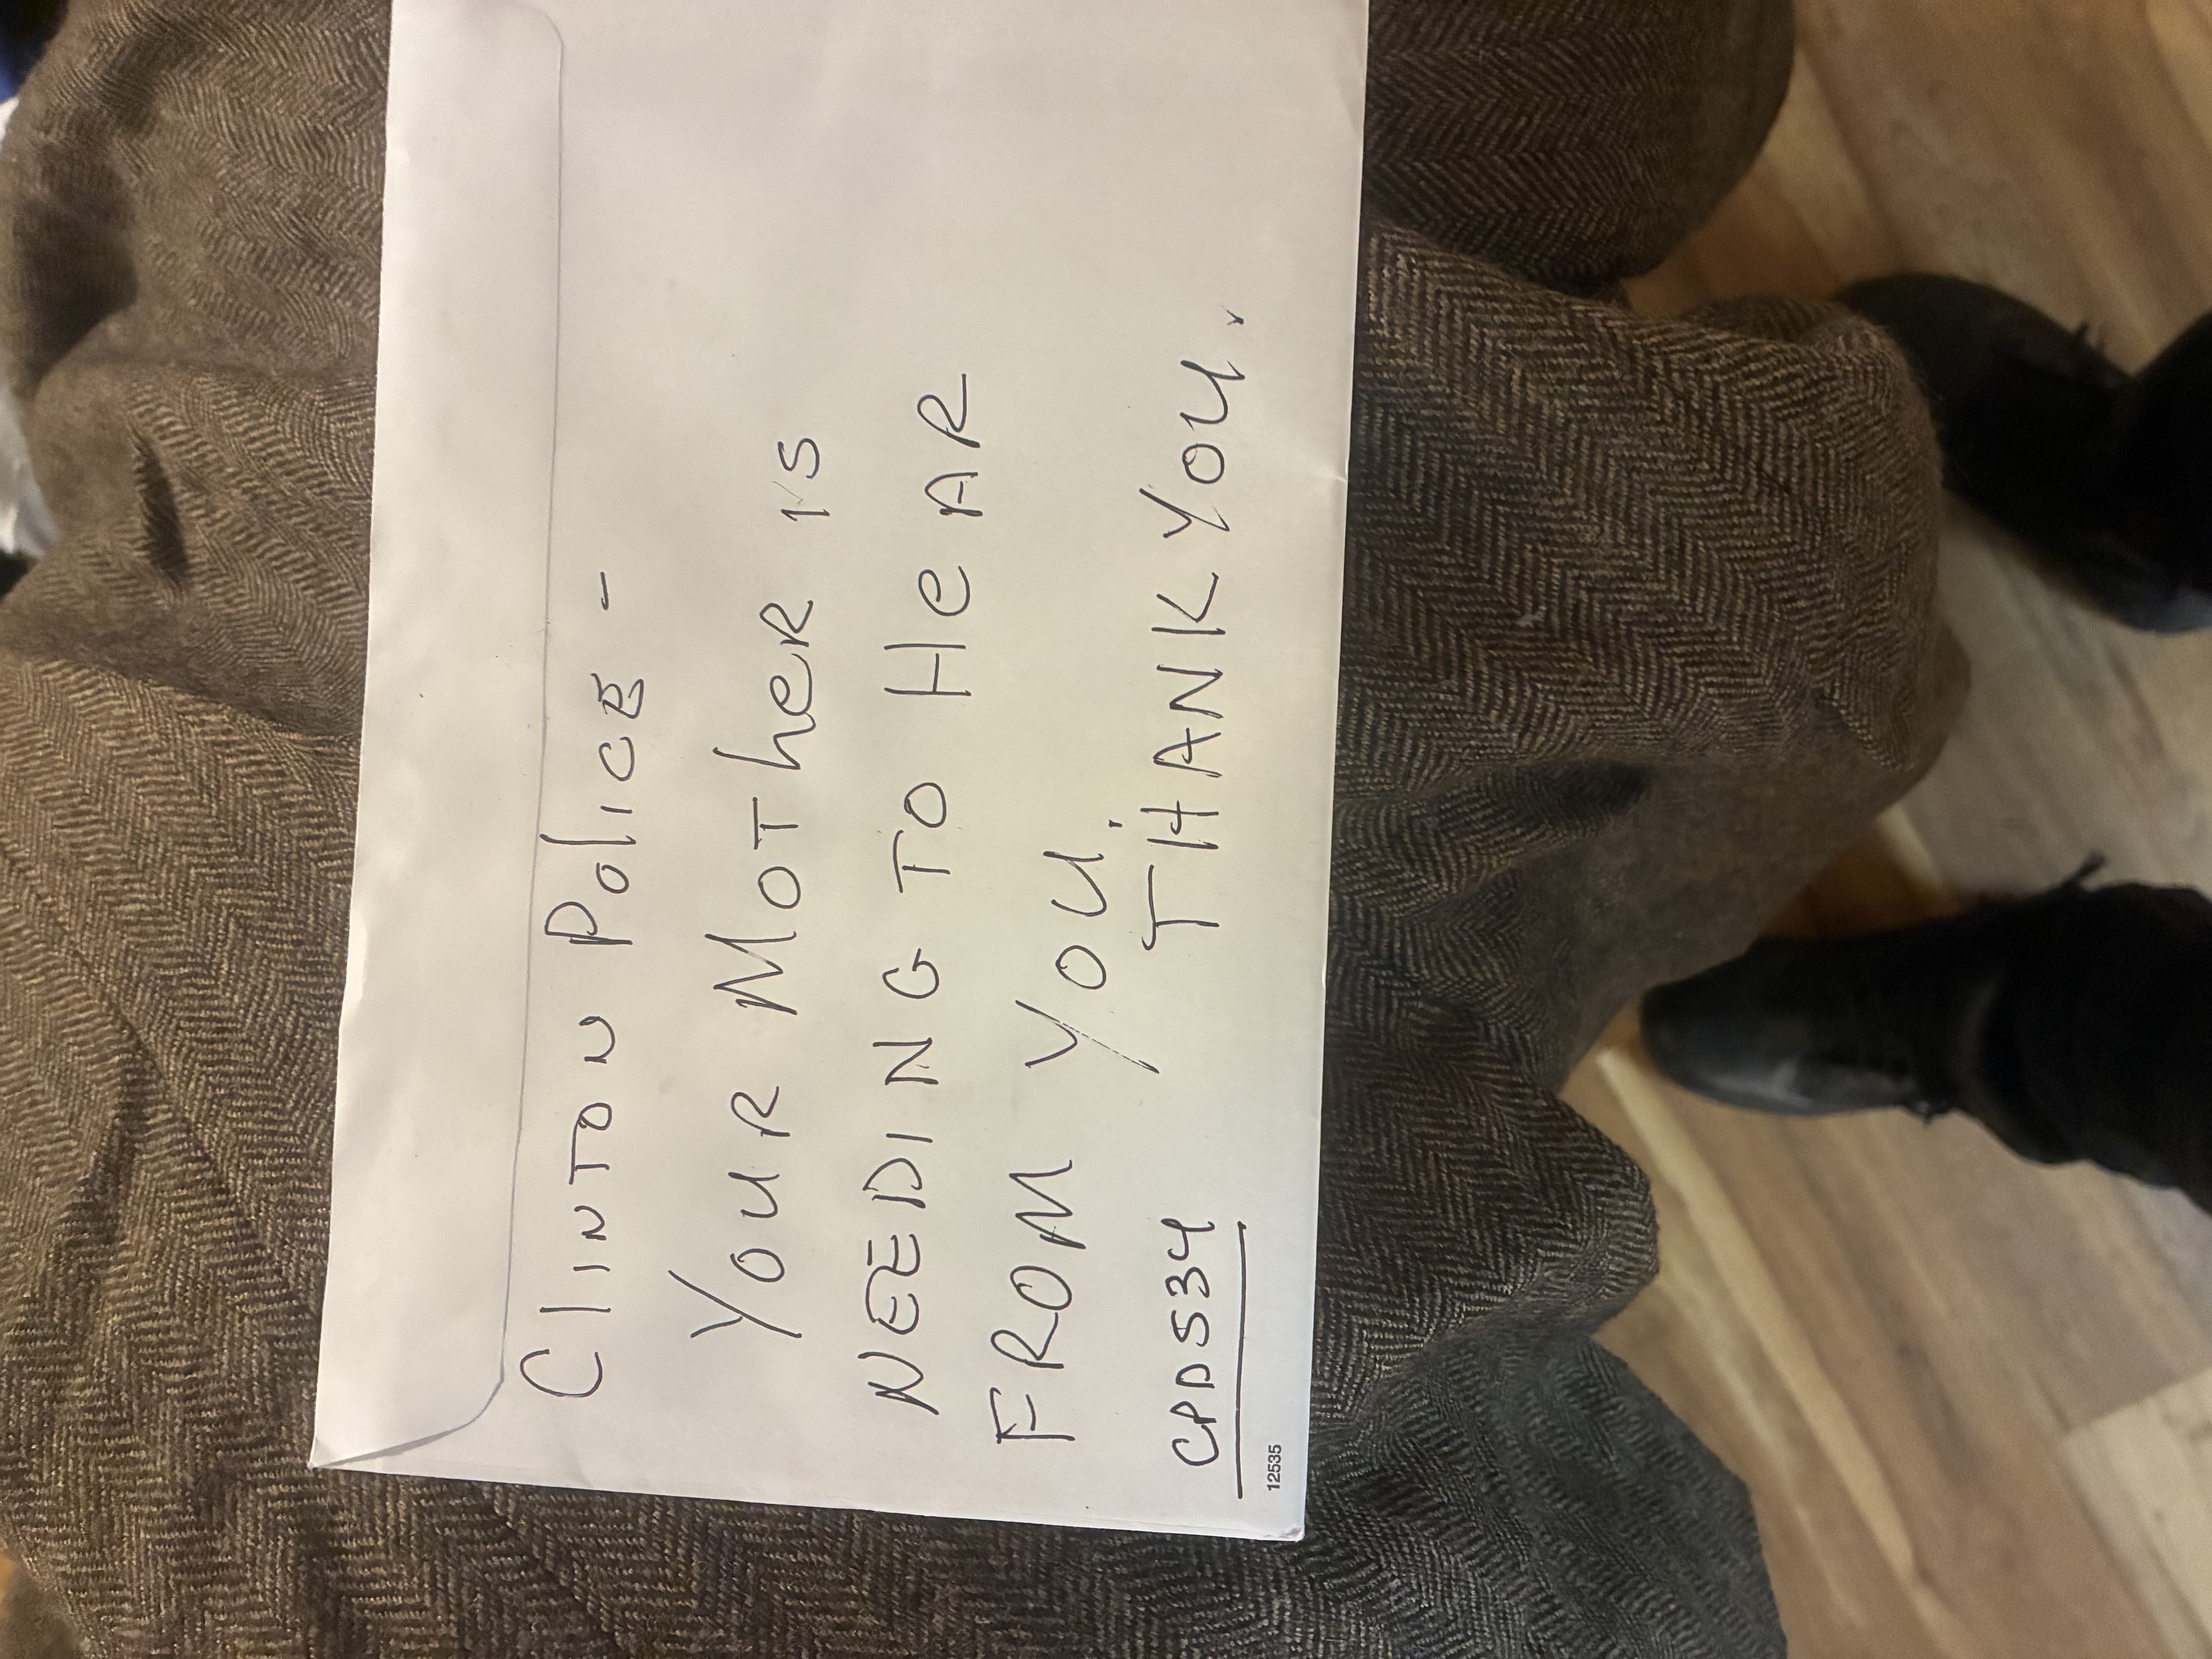 Clinton Police -
Your Mother is
NEEDING TO HeAR
FROM You.
THANK You.
CPD534
12535